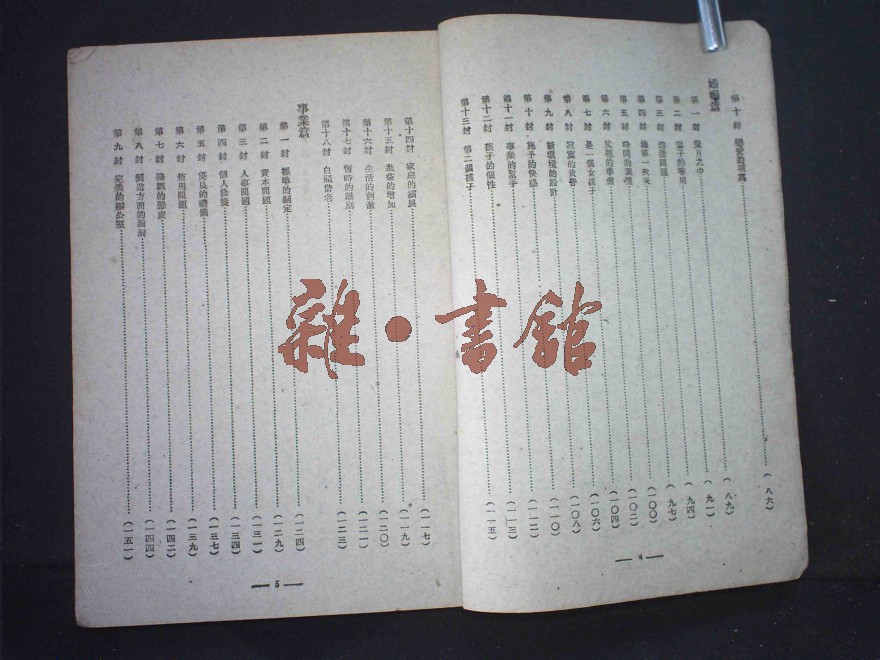 第十封 戀愛的現寫……(八六)
婚姻篇
第一封 蜜月之中……(八九)
第二封 妻子的專用……(九一)
第三封……(九四)
第四封 雖第一次天……(九七)
第五封 時間的調理……(一〇〇)
第六封 父親的準備……(一〇二)
第七封 是一個女孩子……(一〇四)
第八封 寂寞的黃昏……(一〇六)
第九封 新環境的設計……(一〇八)
第十封 施予的快感……(一一〇)
第十一封 事業的幫手……(一一二)
第十二封 孩子的個性……(一一三)
第十三封 第二個孩子……(一一五)
— 4 —
第十四封 家庭的演展……(一一七)
第十五封 效益的增加……(一一九)
第十六封 生活的刺激……(一二〇)
第十七封 暫時的離別……(一二一)
第十八封 白頭偕老……(一二三)
事業篇
第一封 標準的制定……(一二四)
第二封 資本問題……(一二九)
第三封 人事問題……(一三一)
第四封 個人修養……(一三四)
第五封 優良的禮儀……(一三七)
第六封 信用問題……(一三九)
第七封 樂觀的態度……(一四二)
第八封 製造方面的函稿……(一四四)
第九封 完美的辦公室……(一五一)
— 5 —
雜·書館